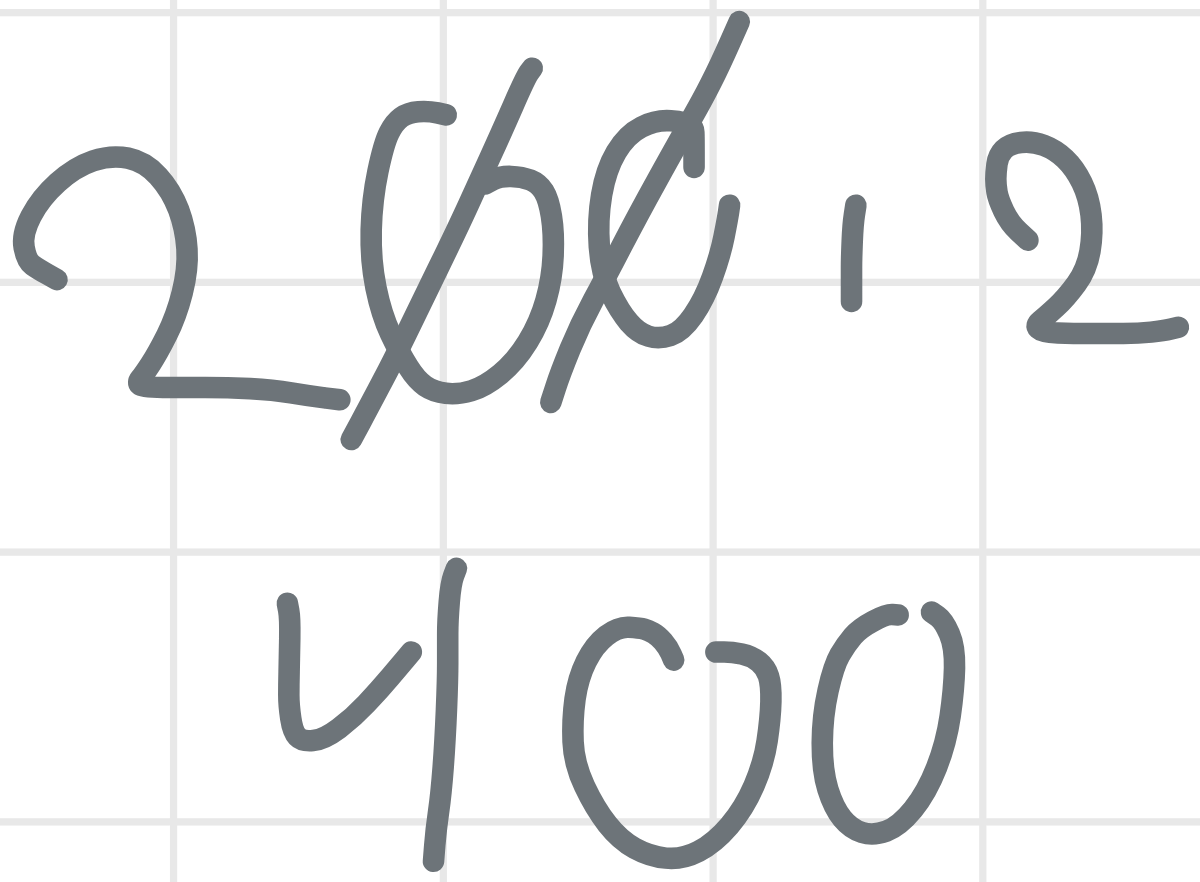 200.2
400